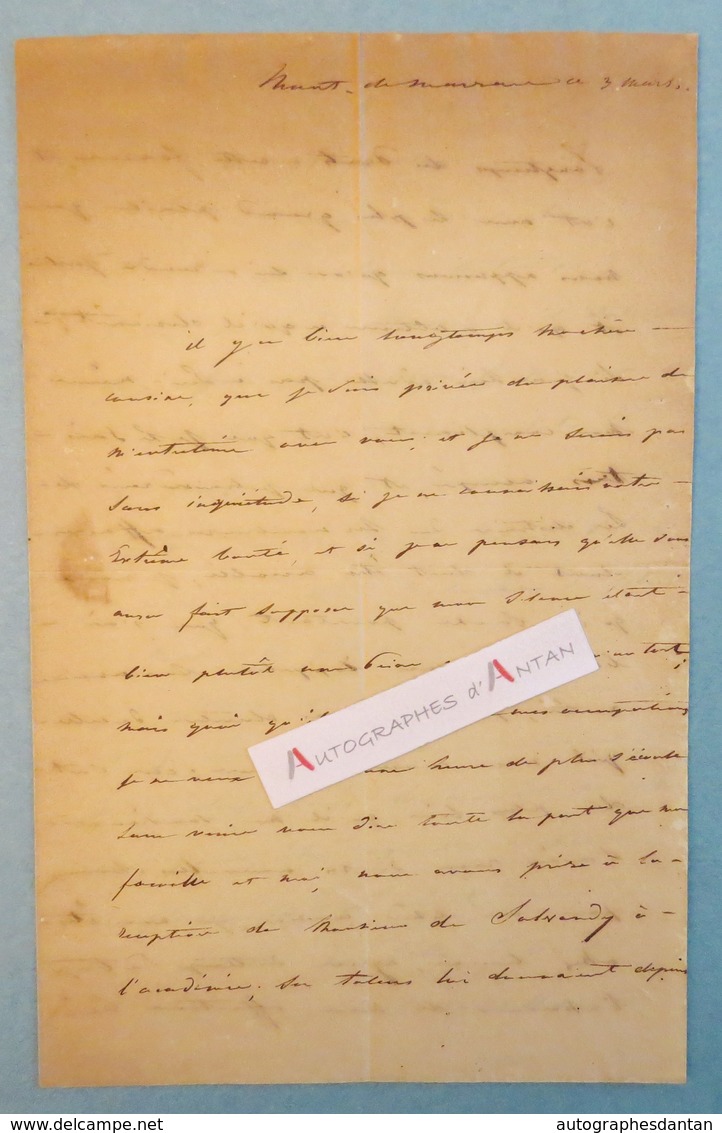 Mont-de-marsan ce 3 mars.
il y a bien longtemps ma chère
cousine, que je suis privée du plaisir de
m'entretenir avec vous; et je ne serais pas
sans inquiétude, si je ne connaissais votre
Extrême bonté, et si, je ne pensais qu'elle vous
aura fait supposer que mon silence était
bien plutôt un
mais quoi qu'il mes occupations
je ne veux une heure de plus s'écoule
sans venir vous dire toute la part que ma
famille et moi, nous avons prise à la
reception de Monsieur de Salvandy à
l'académie; ses talens lui donnaient depuis
AUTOGRAPHES d'ANTAN
www.delcampe.net
autographesdantan